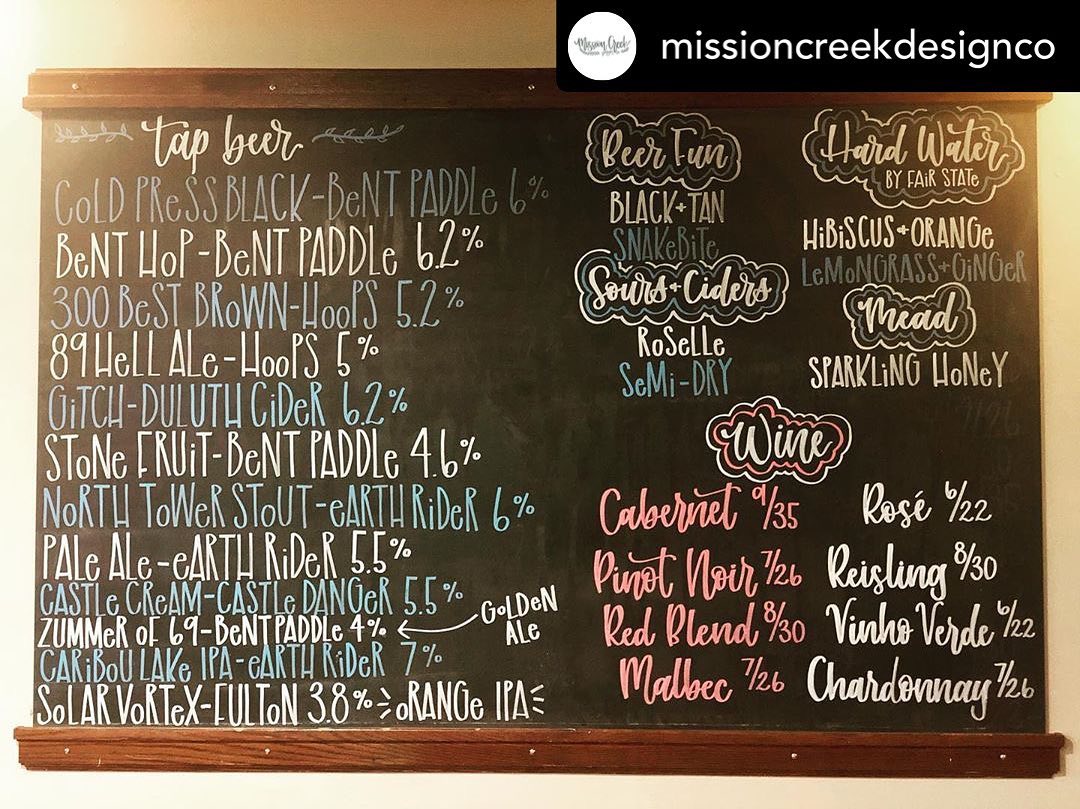 missioncreekdesignco
Mission Creek
tap beer
COLD PRESS BLACK-BENT PADDLE 6%
BENT HOP-BENT PADDLE 6.2%
300 BEST BROWN-HOOPS 5.2%
89 HELL ALE-HOOPS 5%
GITCH-DULUTH CIDER 6.2%
STONE FRUIT-BENT PADDLE 4.6%
NORTH TOWER STOUT-EARTH RIDER 6%
PALE ALE-EARTH RIDER 5.5%
CASTLE CREAM-CASTLE DANGER 5.5%
ZUMMER OF 69-BENT PADDLE 4%
GOLDEN
ALE
CARIBOU LAKE IPA-EARTH RIDER 7%
SOLAR VORTEX-FULTON 3.8% ORANGE IPA
Beer Fun
BLACK+TAN
SNAKEBITE
Sours+Ciders
ROSELLE
SEMI-DRY
Hard Water
BY FAIR STATE
HIBISCUS+ORANGE
LEMONGRASS+GINGER
Mead
SPARKLING HONEY
Wine
Cabernet 9/35
Pinot Noir 7/26
Red Blend 8/30
Malbec 7/26
Rosé 6/22
Reisling 8/30
Vinho Verde 6/22
Chardonnay 7/26